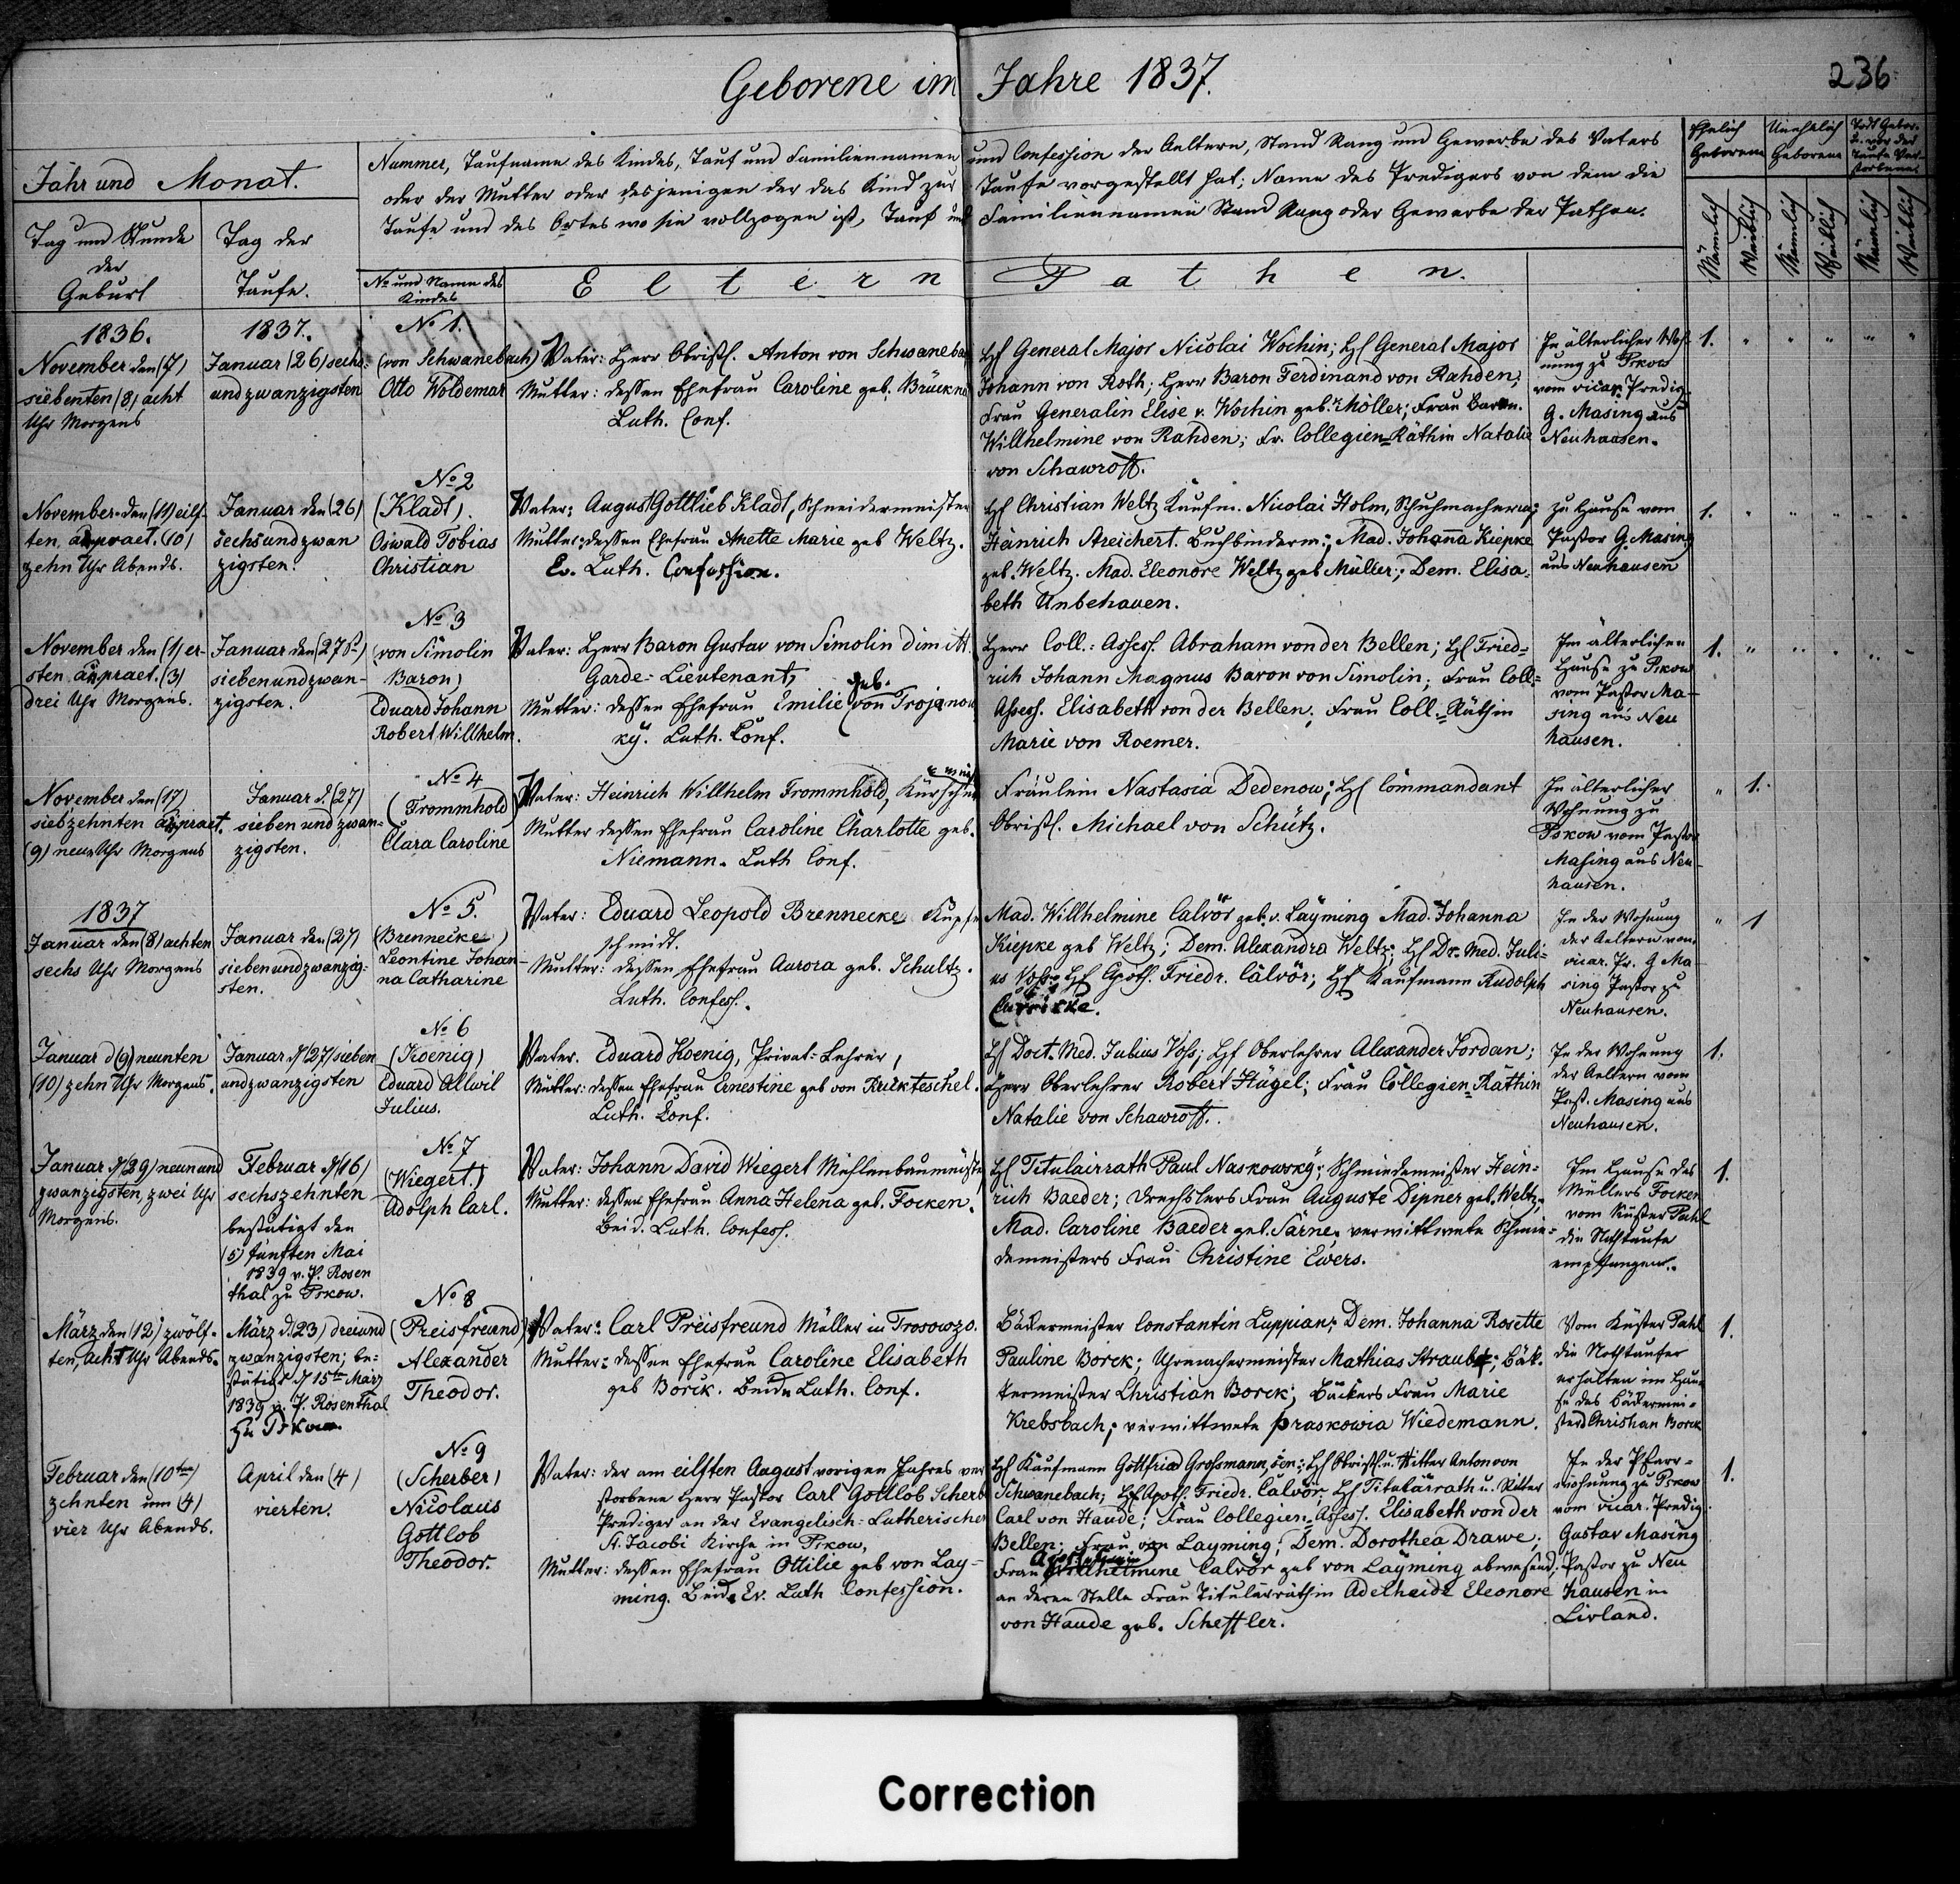 Geborene im Jahre 1837.
236
Jahr und Monat.
Tag und Stunde
der
Geburt
Tag der
Taufe.
Nummer, Taufname des Kindes, Tauf und Familiennamen und Confession der Aeltern, Stand Rang und Gewerbe des Vaters
oder der Mutter oder desjenigen der das Kind zur Taufe vorgestellt hat; Name des Predigers von dem die
Taufe und des Ortes wo sie vollzogen ist, Tauf und Familiennamen Stand Rang oder Gewerbe der Pathen.
No und Name des
Kindes
Eltern
Pathen.
Ehelich
Geborene
Unehelich
Geborene
Todt Gebor.
u. vor der
Taufe Ver-
storbene.
Männlich
Weiblich
Männlich
Weiblich
Männlich
Weiblich
1836.
November den (7)
siebenten (8) acht
Uhr Morgens
1837.
Januar (26) sechs-
undzwanzigsten
No 1.
(von Schwanebach)
Otto Woldemar
Vater: Herr Obristl. Anton von Schwaneba
Mutter: dessen Ehefrau Caroline geb. Brückne
Luth. Conf.
H General Major Nicolai Wochin; H General Major
Johann von Roth; Herr Baron Ferdinand von Rahden;
Frau Generalin Elise v. Wochin geb. Möller; Frau Baron.
Willhelmine von Rahden; Fr. Collegien-Räthin Natalie
von Schawroff.
In älterlicher Woh-
nung zu Pskow
vom vicar. Predig.
G. Masing aus
Neuhausen.
1.
November den (11) eilf-
ten, a. praet. (10)
zehn Uhr Abends.
Januar den (26)
sechsundzwan
zigsten.
No 2
(Kladt).
Oswald Tobias
Christian
Vater: August Gottlieb Kladt, Schneidermeister
Mutter: dessen Ehefrau Anette Marie geb Weltz.
Ev. Luth. Confession.
H Christian Weltz Kaufm. Nicolai Holm, Schuhmacherm;
Heinrich Areichert. Buchbinderm.; Mad. Johanna Kiepke
geb. Weltz. Mad. Eleonore Weltz geb Müller; Dem. Elisa-
beth Unbehauen.
zu Hause vom
Pastor G. Masing
aus Neuhausen
1.
November den (1) er-
sten a. praet. (3)
drei Uhr Morgens.
Januar den (27st)
siebenundzwan-
zigsten.
No 3
(von Simolin
Baron)
Eduard Johann
Robert Willhelm.
Vater: Herr Baron Gustav von Simolin dim. Att.
Garde-Lieutenant,
Mutter: dessen Ehefrau Emilie geb. von Trojanow
ky. Luth. Conf.
Herr Coll.: Assess. Abraham von der Bellen; H Fried-
rich Johann Magnus Baron von Simolin; Frau Coll-
Assess. Elisabeth von der Bellen; Frau Coll.-Räthin
Marie von Roemer.
Im älterlichen
Hause zu Pskow
vom Pastor Ma-
sing aus Neu
hausen.
1.
November den (17)
siebzehnten a. praet.
(9) neun Uhr Morgens
Januar d. (27)
sieben und zwan-
zigsten.
No 4
(Trommhold)
Clara Caroline
Vater: Heinrich Willhelm Trommhold, Kürschne
Mutter dessen Ehefrau Caroline Charlotte geb.
Niemann. Luth Conf.
Fräulein Nastasia Dedenow; H Commandant
Obristl. Michael von Schütz.
In älterlicher
Wohnung zu
Pskow vom Pastor
Masing aus Neu-
hausen.
1.
1837
Januar den (8) achten
sechs Uhr Morgens
Januar den (27)
siebenundzwanzig-
sten.
No 5.
(Brennecke)
Leontine Johan-
na Catharine
Vater: Eduard Leopold Brennecke Kupfe
schmidt.
Mutter: dessen Ehefrau Aurora geb. Schultz.
Luth. Confess.
Mad. Willhelmine Calvör geb. v. Layming Mad. Johanna
Kiepke geb Weltz; Dem. Alexandra Weltz; H Dr. Med. Juli-
us Voss; H Apoth. Friedr. Calvör; H Kaufmann Rudolph
In der Wohnung
der Aeltern vom
vicar. Pr. G Ma
sing Pastor zu
Neuhausen.
1
Januar d (9) neunten
(10) zehn Uhr Morgens.
Januar d (27) sieben
undzwanzigsten
No 6
(Koenig)
Eduard Allwil
Julius.
Vater. Eduard Koenig, Privat-Lehrer,
Mutter: dessen Ehefrau Ernestine geb von Krükteschel.
Luth. Conf.
H Doct. Med. Julius Voss; H Oberlehrer Alexander Jordan;
Herr Oberlehrer Robert Hügel; Frau Collegien-Räthin
Natalie von Schawroff.
In der Wohnung
der Aeltern vom
Past. Masing aus
Neuhausen.
1.
Januar d (29) neunund
zwanzigsten, zwei Uhr
Morgens.
Februar d (16)
sechszehnten
bestätigt den
(5) fünften Mai
1839 v. P. Rosen
thal zu Pskow.
No 7
(Wiegert.)
Adolph Carl.
Vater: Johann David Wiegert Mühlenbaumeiste
Mutter: dessen Ehefrau Anna Helena geb. Focken.
Beid. Luth. Confess.
H Titulairrath Paul Naskowsky; Schmiedemeister Hein-
rich Baeder; Drechslers Frau Auguste Dipner geb. Weltz;
Mad. Caroline Baeder geb. Särne; verwittwete Schmie-
demeisters Frau Christine Ewers.
Im Hause des
Müllers Focken
vom Küster Pahl
die Nothtaufe
empfangen.
1.
März den (12) zwölf-
ten, acht Uhr Abends.
März d. (23) dreiund
zwanzigsten; be-
stätigt d 15ten März
1839 v. P. Rosenthal
zu Pskow
No 8
(Preisfreund)
Alexander
Theodor.
Vater: Carl Preisfreund Müller in Trosowzo.
Mutter: dessen Ehefrau Caroline Elisabeth
geb Borck. Beide Luth. Conf.
Bäckermeister Constantin Luppian; Dem. Johanna Rosette
Pauline Borck; Uhrmachermeister Mathias Straube; Bäk-
kermeister Christian Borck; Bäckers Frau Marie
Krebsbach; verwittwete Praskowia Wiedemann.
Vom Küster Pahl
die Nothtaufe
erhalten im Hau-
se des Bäckermei-
sters Christian Borck
1.
Februar den (10ten)
zehnten um (4)
vier Uhr Abends.
April den (4)
vierten.
No 9
(Scherber)
Nicolaus
Gottlob
Theodor.
Vater: der am eilften August vorigen Jahres ver
storbene Herr Pastor Carl Gottlob Scherb
Prediger an der Evangelisch-Lutherischen
St. Jacobi Kirche in Pskow,
Mutter: dessen Ehefrau Ottilie geb von Lay-
ming. Beide Ev. Luth Confession.
H Kaufmann Gottfried Grossmann, sen.; H Obristl. u. Ritter Anton von
Schwanebach; H Apoth. Friedr. Calvör. H Titulärrath u. Ritter
Carl von Haude; Frau Collegien-Assess. Elisabeth von der
Bellen; Frau von Layming; Dem. Dorothea Drawe;
Frau Willhelmine Calvör geb von Layming abwesend,
an deren Stelle Frau Titulärräthin Adelheide Eleonore
von Haude geb. Scheffler.
In der Pfarr-
wohnung zu Pskow
vom vicar. Predig.
Gustav Masing
Pastor zu Neu
hausen in
Livland.
1.
Correction